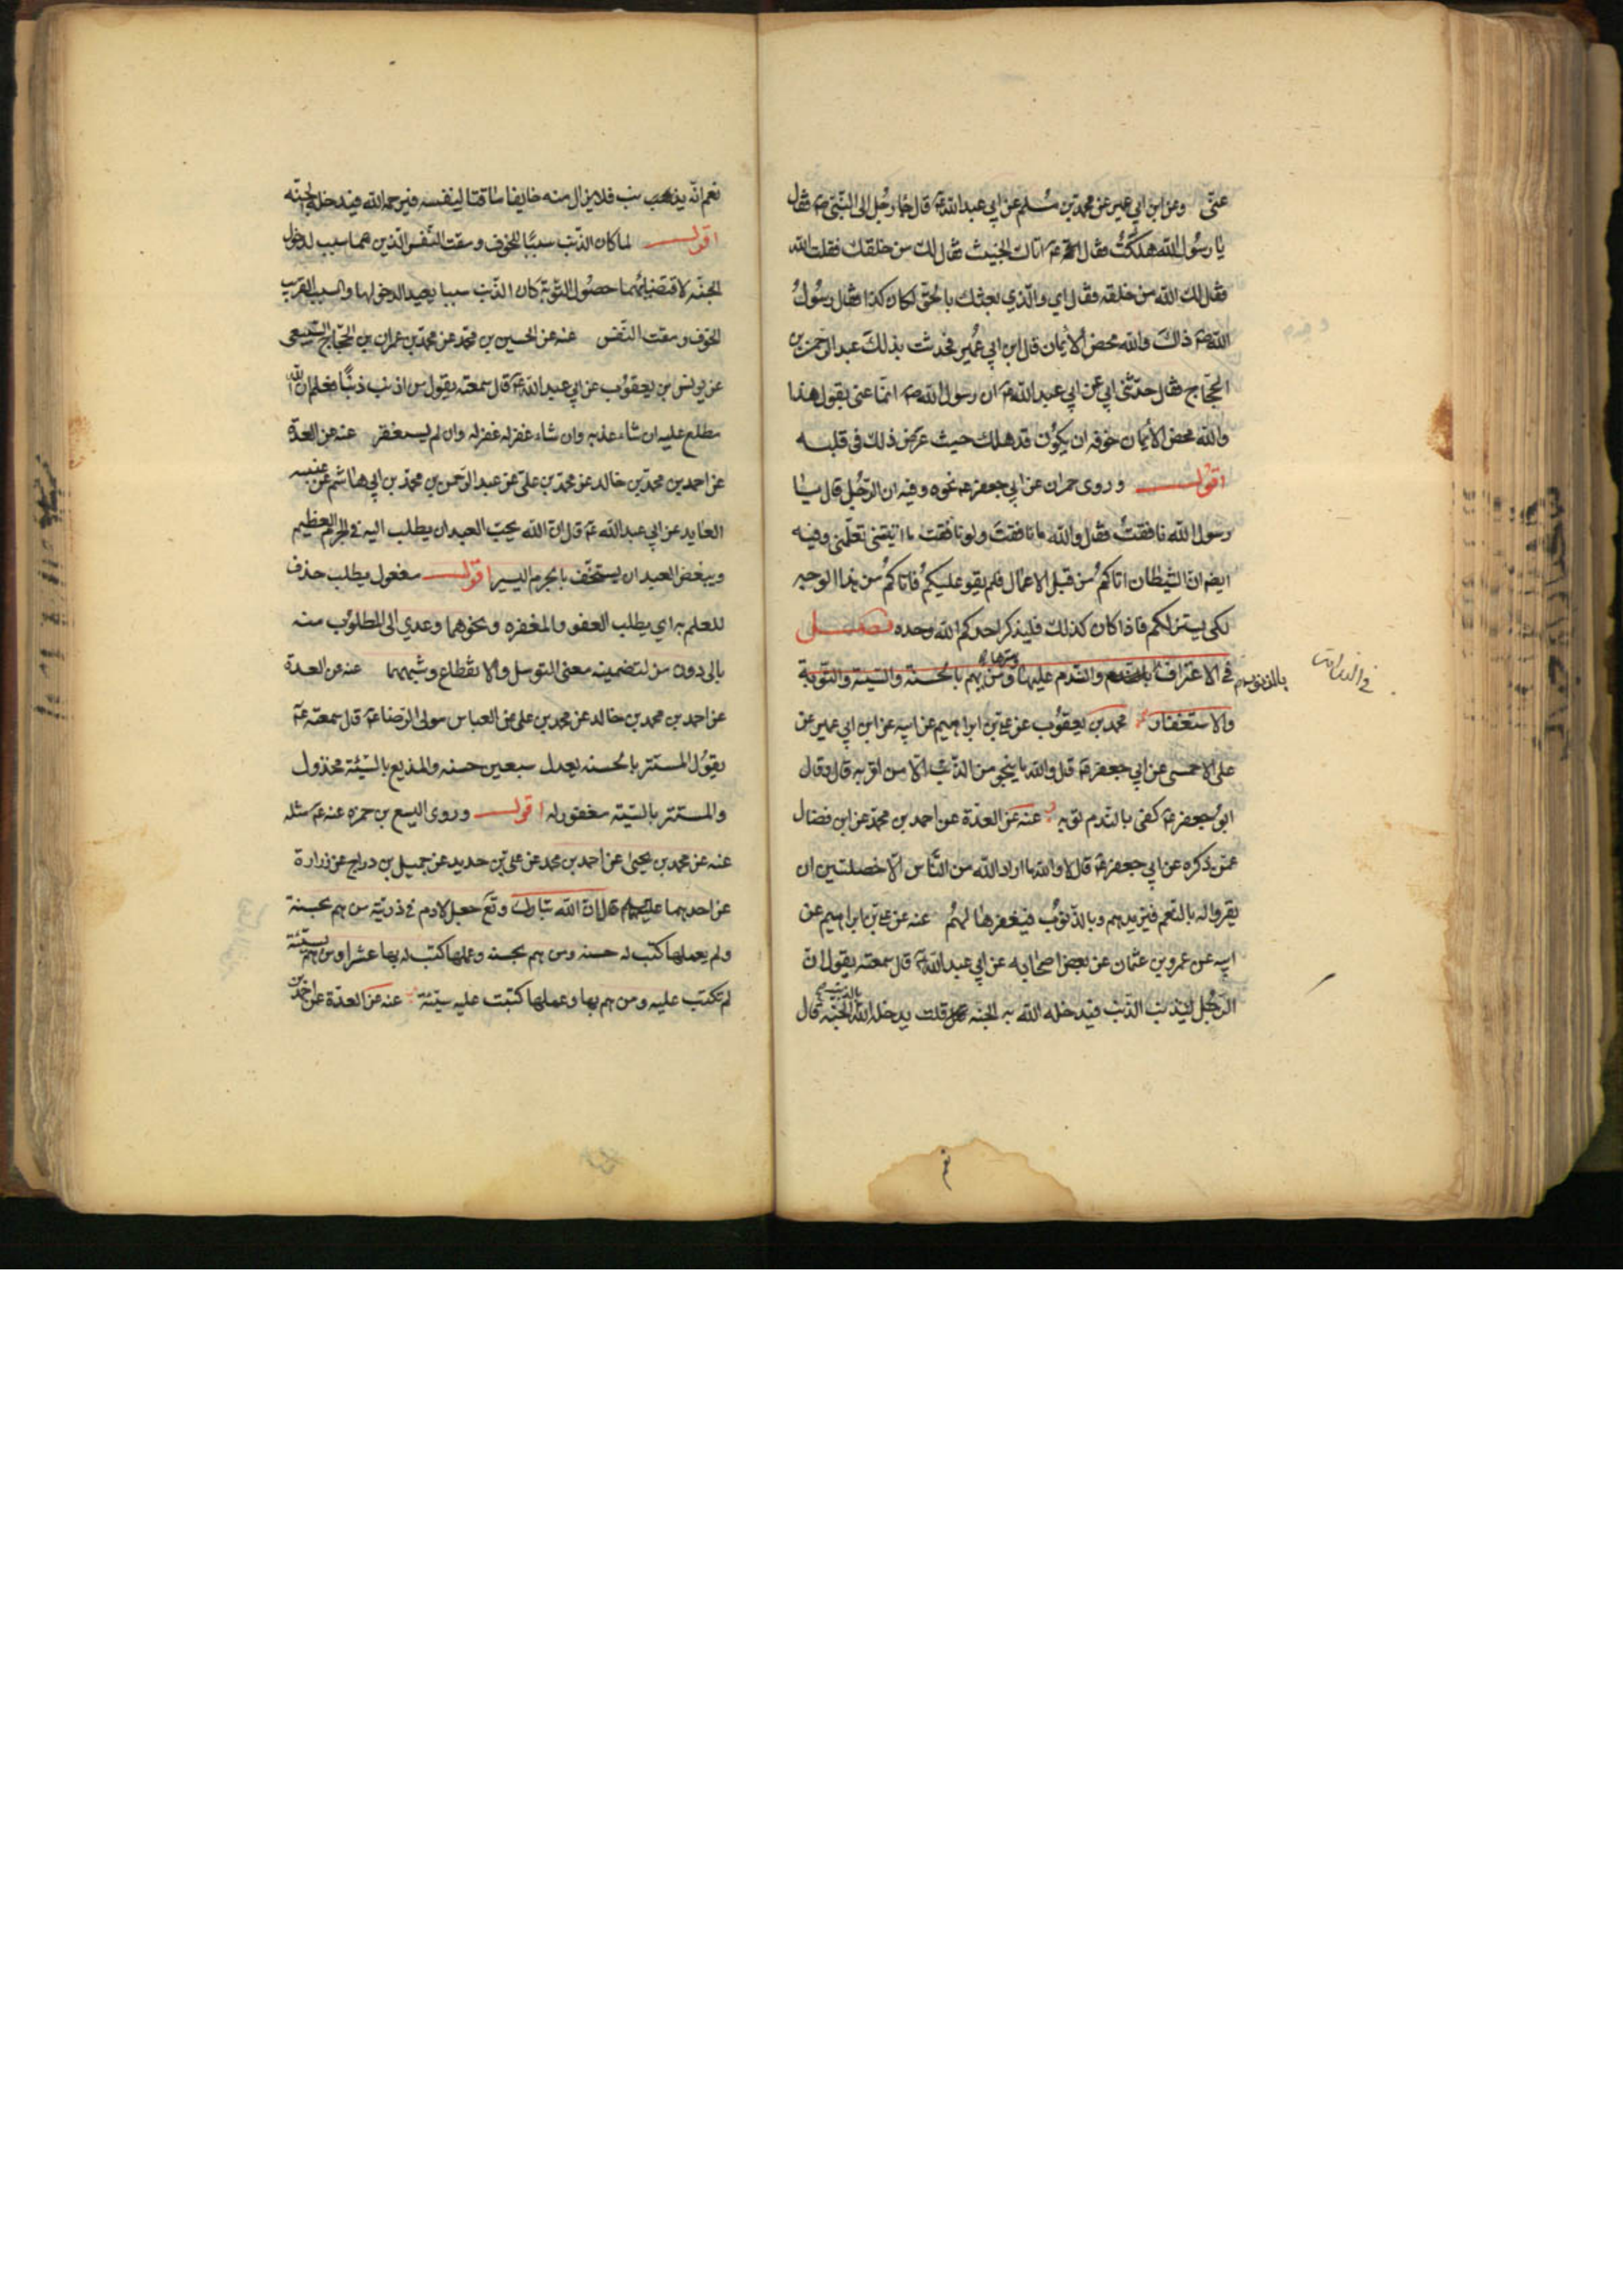 عنّى وعن ابن ابي عمير عن محمّد بن مسلم عن ابي عبد الله ع قال جاء رجل الى النّبى ص فقال
يا رسول الله هلكتُ فقال له ع اتاك الخبيث فقال لك من خلقك فقلت الله
فقال لك الله من خلقه فقال اي والّذي بعثك بالحقّ لكان كذا فقال رسُولُ
الله ص ذاك والله محض الايمان قال ابن ابي عُمير فحدثت بذلك عبد الرّحمن بن
الحجّاج فقال حدّثنى ابي عن ابي عبد الله ع ان رسول الله ص انمّا عنى بقوله هذا
والله محض الايمان خوفه ان يكون قد هلك حيث عرض ذلك فى قلبه
اقول وروى حمران عن ابي جعفر ع نحوه وفيه ان الرّجُل قال يا
رسول الله نافقتُ فقال والله ما نافقتَ ولو نافقت ما اتيتنى تعلمنى وفيه
ايضا انّ الشيطان اتاكم من قبل الاعمال فلم يقو عليكم فاتاكم من هذا الوجه
لكى يستزلكم فاذا كان كذلك فليذكر احدكم الله وحده فصل
فى الاعتراف بالذنوب والنّدم عليها وسترها ومن يهم بالحسنة والسيّئة والتوبة
والاستغفار محمد بن يعقوب عن علي بن ابراهيم عن ابيه عن ابن ابي عمير عن
على الاحمسى عن ابي جعفر ع قال والله ما ينجى من الذّنب الّا من اقرّ به قال وقال
ابو جعفر ع كفى بالنّدم توبه عنه عن العدّة عن احمد بن محمّد عن ابن فضال
عمّن ذكره عن ابي جعفر ع قال لا والله ما اراد الله من النّاس الّا خصلتين ان
يقروا له بالنّعم فيزيدهم وبالذّنوب فيغفرها لهم عنه عن علي بن ابراهيم عن
ابيه عن عمرو بن عثمان عن بعض اصحابه عن ابي عبد الله ع قال سمعته يقول انّ
الرّجُل ليذنب الذّنب فيدخله الله به الجنّه قلت يدخله الله بالذنب الجنّة قال
نعم
نعم انّه يذنب فلا يزال منه خايفا ماقتا لنفسه فيرحمه الله فيدخله الجنّه
اقول لما كان الذّنب سببًا للخوف ومقت النّفس الّذين هما سبب لدخول
الجنّه لاقتضائهما حصُول التّوبة كان الذّنب سببا بعيدا لدخولها والسبب القريب
الخوف ومقت النّفس عنه عن الحسين بن محمّد عن محمّد بن عمران بن الحجّاج السّبيعى
عن يونس بن يعقوب عن ابي عبد الله ع قال سمعته يقول من اذنب ذنبًا فعلم ان الله
مطلع عليه ان شاء عذبه وان شاء غفر له غفر له وان لم يستغفر عنه عن العدّة
عن احمد بن محمّد بن خالد عن محمّد بن علىّ عن عبد الرّحمن بن محمّد بن ابي هاشم عن عنبسه
العابد عن ابي عبد الله ع قال انّ الله يحبّ العبد ان يطلب اليه فى الجرم العظيم
ويبغض العبد ان يستخفّ بالجرم اليسير اقول مفعول يطلب حذف
للعلم به اي يطلب العفو والمغفره ونحوهما وعدي الى المطلوب منه
بالى دون من لتضمينه معنى التوسل والانقطاع وشبههما عنه عن العدة
عن احمد بن محمد بن خالد عن محمد بن على عن العباس مولى الرّضا ع قال سمعته ع
يقول المستتر بالحسنه يعدل سبعين حسنه والمذيع بالسّيّئة مخذول
والمستتر بالسّيّئه مغفور له اقول وروى اليسع بن حمزه عنه ع مثله
عنه عن محمد بن يحيى عن احمد بن محمد عن على بن حديد عن جميل بن دراج عن زرارة
عن احدهما عليهما قال انّ الله تبارك وتعَ جعل لادم فى ذريّته من هم بحسنة
ولم يعملها كتب له حسنه ومن هم بحسنه وعملها كتب له بها عشرا ومن هم بسيّئة
لم تكتب عليه ومن هم بها وعملها كتبت عليه سيّئة عنه عن العدّة عن احمد بن